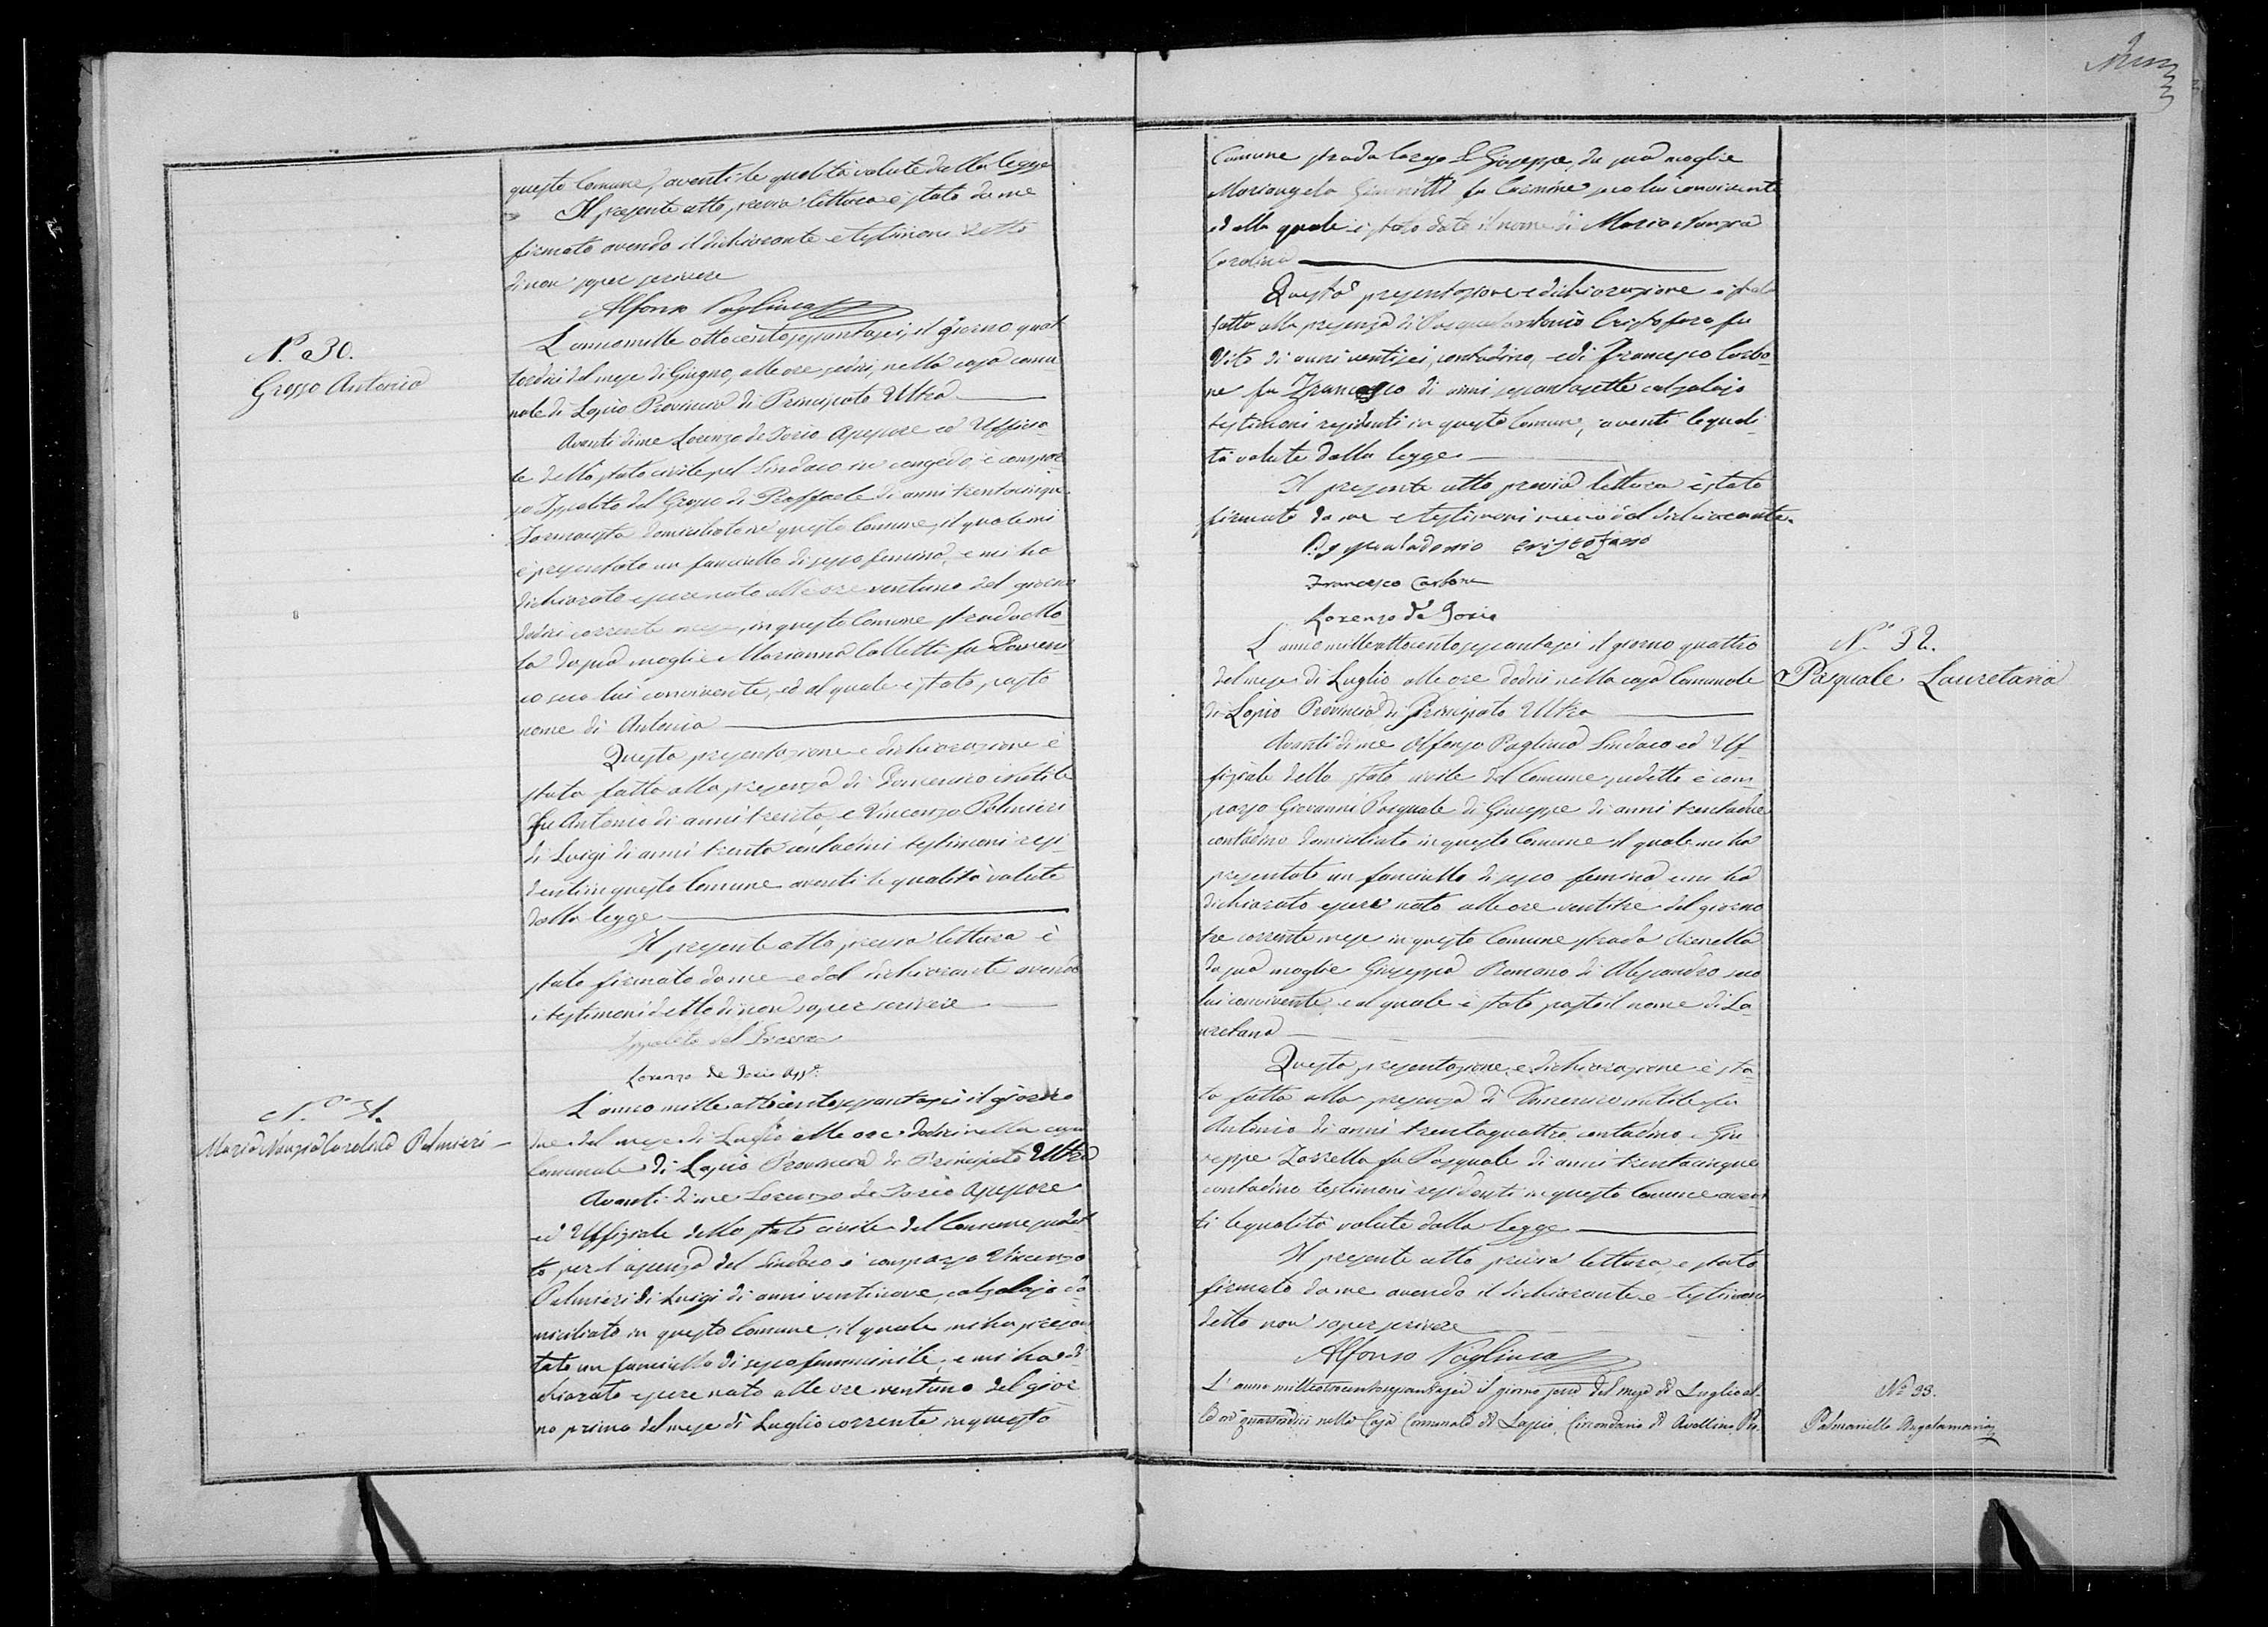 questo Comune, aventi le qualità volute dalla legge
Il presente atto previa lettura è stato da me
firmato avendo il dichiarante e testimoni detto
di non saper scrivere
Alfonso Pagliuca
N.º 30.
Grosso Antonia
L'anno mille ottocento sessantasei, il giorno quat
tordici del mese di Giugno, alle ore sedici, nella casa comu
nale di Lapio Provincia di Principato Ultra
Avanti di me Lorenzo de Iorio Assessore ed Uffizia
le dello stato civile pel Sindaco in congedo, è compar
so Ippolito del Grosso di Raffaele di anni trentacinque
domiciliato in questo Comune, il quale mi
è presentato un fanciullo di sesso femina, e mi ha
dichiarato essere nato alle ore ventuno del giorno
dodici corrente mese, in questo Comune strada
da sua moglie Marianna Colletti fu Domeni
co seco lui convivente, ed al quale è stato posto
nome di Antonia
Questa presentazione e dichiarazione è
stata fatta alla presenza di Domenico
fu Antonio di anni trenta, e Vincenzo Palmieri
di Luigi di anni trenta contadini testimoni resi
denti in questo Comune aventi le qualità volute
dalla legge
Il presente atto previa lettura è
stato firmato da me e dal dichiarante avendo
i testimoni detto di non saper scrivere
Ippolito del Grosso
Lorenzo de Iorio Assre
N.º 31.
Maria Nunzia Carolina Palmieri
L'anno mille ottocento sessantasei il giorno
due del mese di Luglio alle ore dodici nella casa
Comunale di Lapio Provincia di Principato Ultra
Avanti di me Lorenzo de Iorio Assessore
ed Uffiziale dello stato civile del Comune sudet
to per l'assenza del Sindaco è comparso Vincenzo
Palmieri di Luigi di anni ventinove, calzolajo do
miciliato in questo Comune, il quale mi ha presen
tato un fanciullo di sesso femminile, e mi ha di
chiarato essere nato alle ore ventuno del gior
no primo del mese di Luglio corrente in questo
Comune strada largo S. Giuseppe, da sua moglie
Mariangela fu Carmine seco lui convivente
ed alla quale è stato dato il nome di Maria Nunzia
Carolina
Questa presentazione e dichiarazione è stata
fatta alla presenza di Pasqualantonio Cristofaro fu
Vito di anni ventisei, contadino, e di Francesco Carbo
ne fu Francesco di anni sessantasette calzolajo
testimoni residenti in questo Comune, aventi le quali
tà volute dalla legge
Il presente atto previa lettura è stato
firmato da me e testimoni meno il dichiarante.
Cristofaro
Francesco Carbone
Lorenzo de Iorio
N.º 32.
Pasquale Lauretana
L'anno mille ottocento sessantasei il giorno quattro
del mese di Luglio alle ore dodici nella casa Comunale
di Lapio Provincia di Principato Ultra
Avanti di me Alfonso Pagliuca Sindaco ed Uf
fiziale dello stato civile del Comune sudetto è com
parso Giovanni Pasquale di Giuseppe di anni trentadue
contadino domiciliato in questo Comune il quale mi ha
presentato un fanciullo di sesso femina, e mi ha
dichiarato essere nato alle ore ventitre del giorno
tre corrente mese in questo Comune strada
da sua moglie Giuseppa Romano di Alessandro seco
lui convivente e al quale è stato posto il nome di La
uretana
Questa presentazione, e dichiarazione è sta
ta fatta alla presenza di Domenico fu
Antonio di anni trentaquattro contadino, e Giu
seppe Zarrella fu Pasquale di anni trentacinque
contadino testimoni residenti in questo Comune aven
ti le qualità volute dalla legge
Il presente atto previa lettura è stato
firmato da me avendo il dichiarante e testimoni
detto non saper scrivere
Alfonso Pagliuca
N.º 33.
Palmariello Angelamaria
L'anno milleottocentosessantasei il giorno sei del mese di Luglio al
le ore quattordici nella Casa Comunale di Lapio, Circondario di Avellino, Pro.